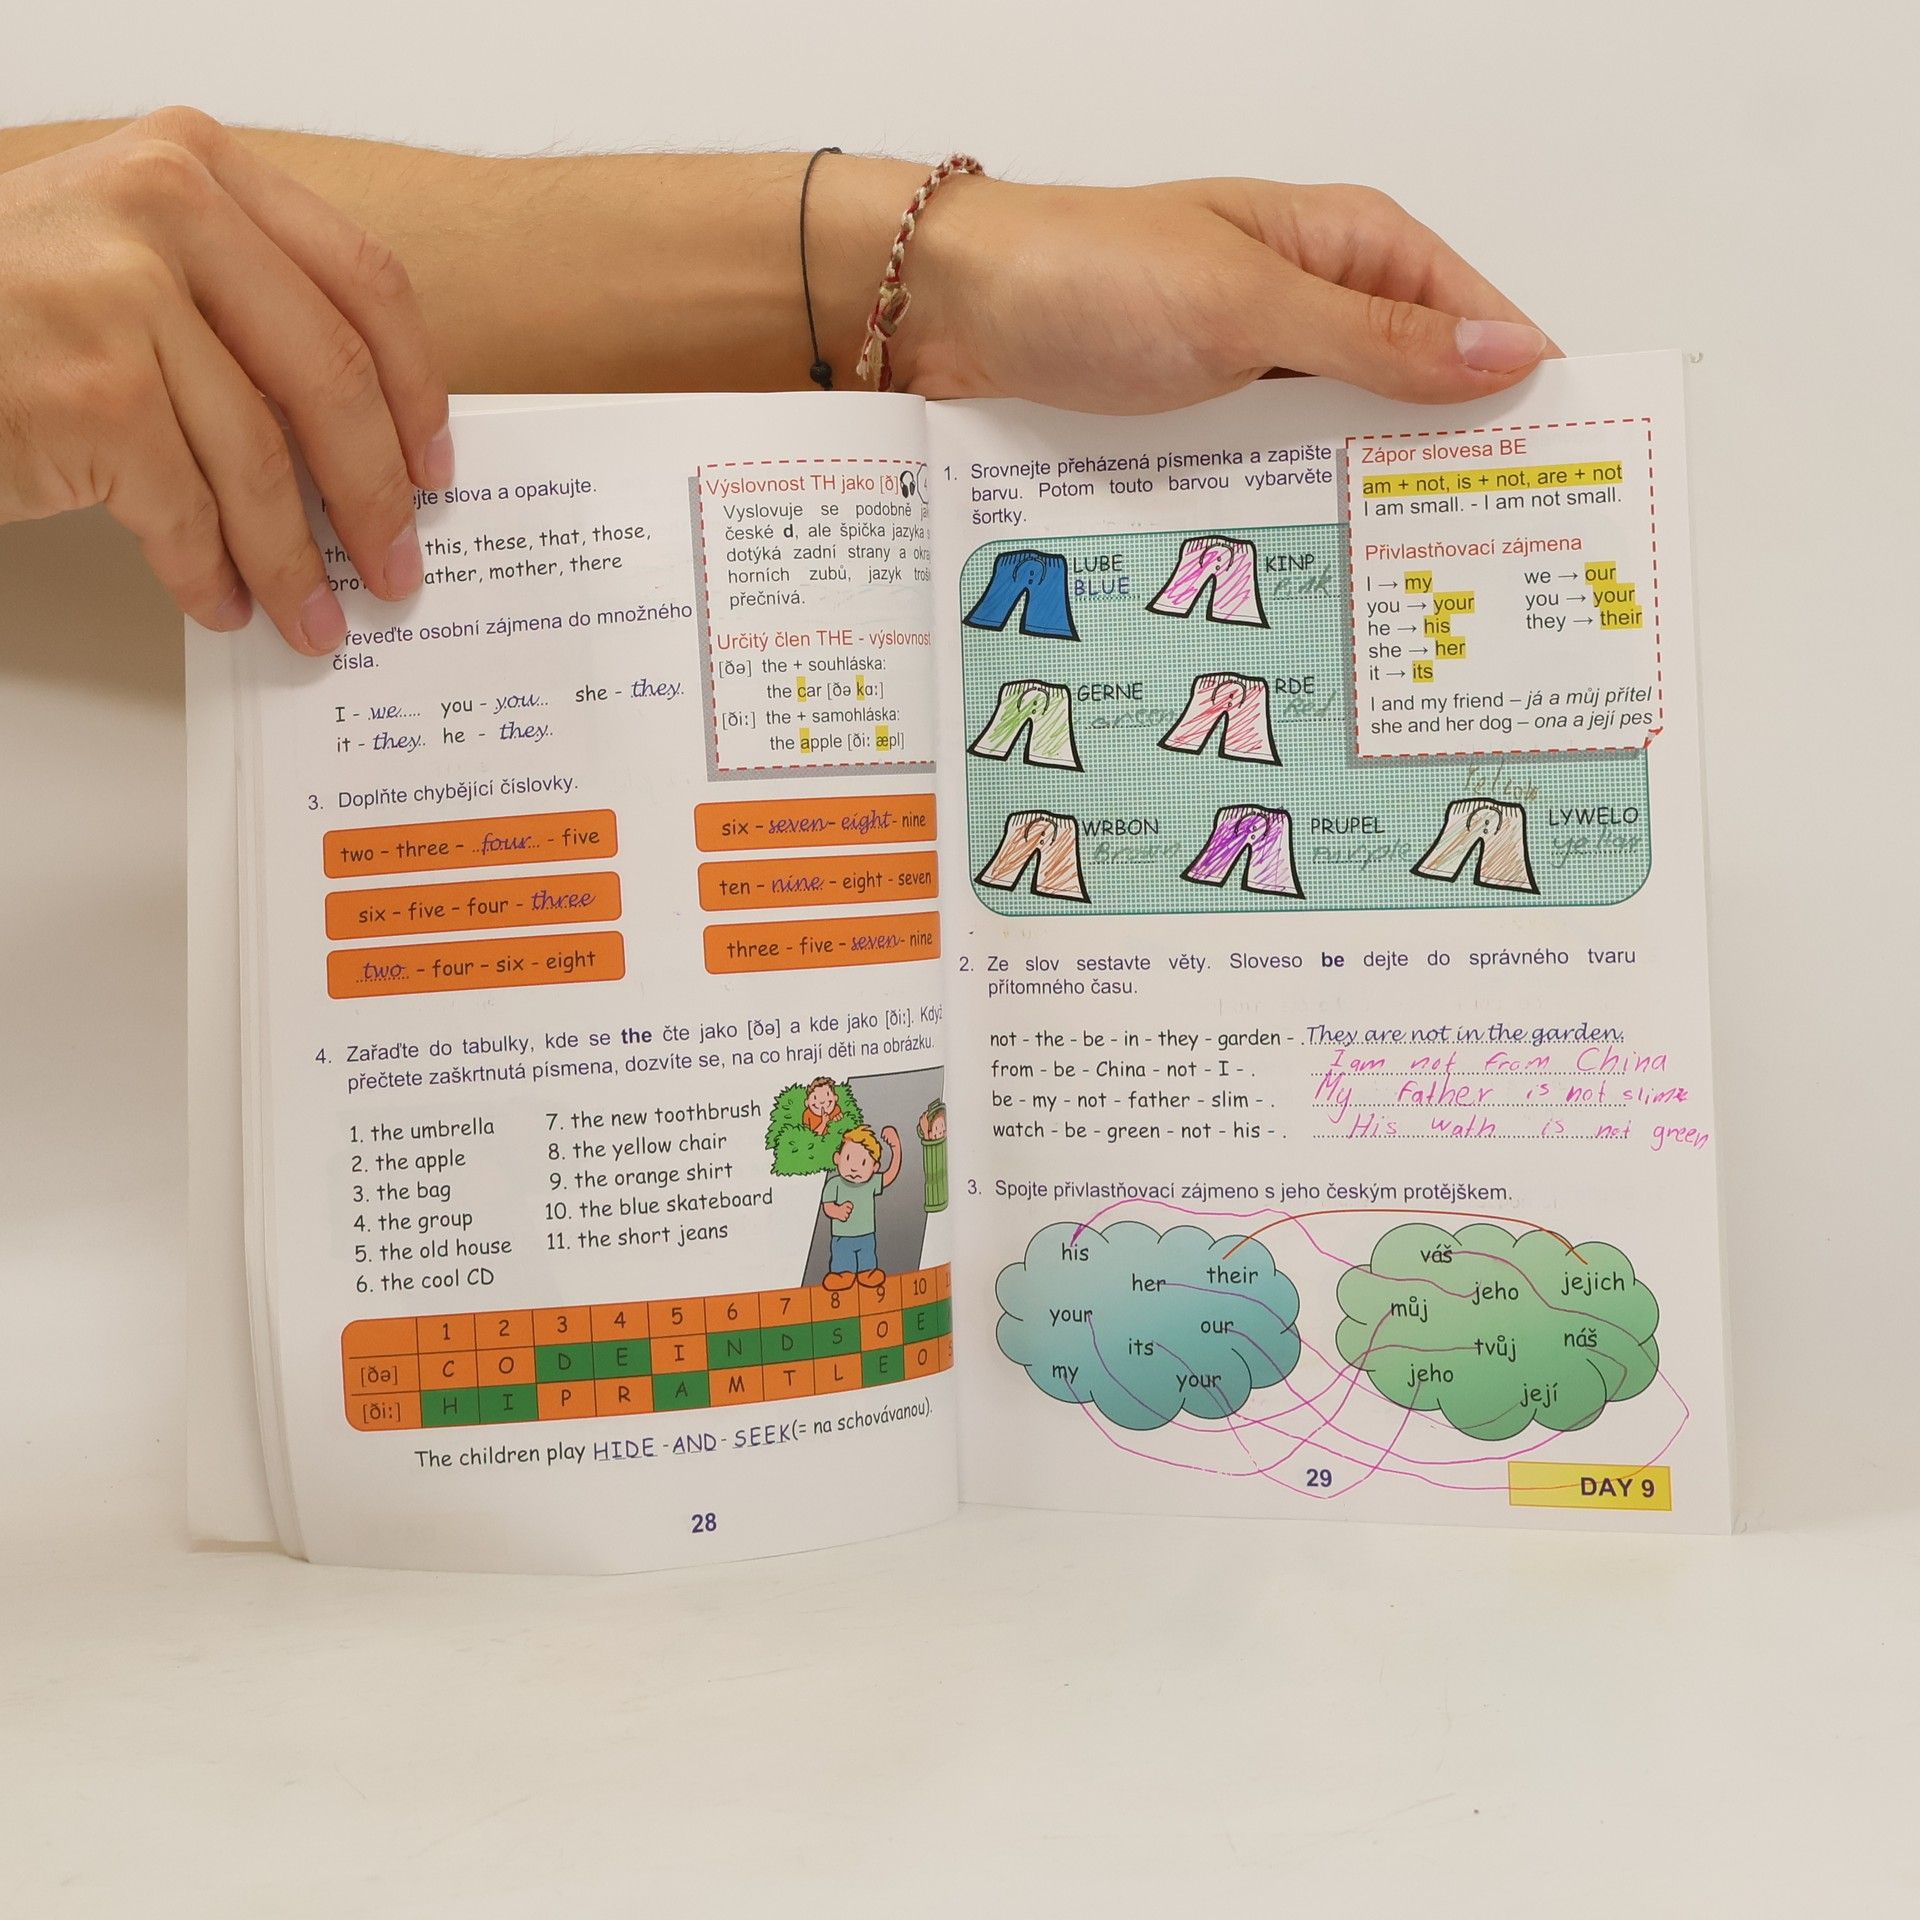 slova a opakujte.
this, these, that, those,
mother, there
osobní zájmena do množného
čísla.
I - we you - you she - they.
it - they. he - they.
Výslovnost TH jako [ð]
Vyslovuje se podobně
české d, ale špička jazyka
dotýká zadní strany a
horních zubů, jazyk
přečnívá.
Určitý člen THE - výslovnost
[ðə] the + souhláska:
the car [ðə kɑː]
[ðiː] the + samohláska:
the apple [ðiː æpl]
3. Doplňte chybějící číslovky.
two - three - four - five
six - five - four - three
two - four - six - eight
six - seven - eight - nine
ten - nine - eight - seven
three - five - seven - nine
4. Zařaďte do tabulky, kde se the čte jako [ðə] a kde jako [ðiː]. Když
přečtete zaškrtnutá písmena, dozvíte se, na co hrají děti na obrázku.
1. the umbrella
2. the apple
3. the bag
4. the group
5. the old house
6. the cool CD
7. the new toothbrush
8. the yellow chair
9. the orange shirt
10. the blue skateboard
11. the short jeans
1 2 3 4 5 6 7 8 9 10
[ðə] C O D E I N D S O E
[ðiː] H I P R A M T L E O
The children play HIDE - AND - SEEK (= na schovávanou).
28
1. Srovnejte přeházená písmenka a zapište
barvu. Potom touto barvou vybarvěte
šortky.
LUBE
BLUE
KINP
Pink
GERNE
Green
RDE
Red
WRBON
Brown
PRUPEL
Purople
Yellow
LYWELO
Zápor slovesa BE
am + not, is + not, are + not
I am small. - I am not small.
Přivlastňovací zájmena
I → my we → our
you → your you → your
he → his they → their
she → her
it → its
I and my friend – já a můj přítel
she and her dog – ona a její pes
2. Ze slov sestavte věty. Sloveso be dejte do správného tvaru
přítomného času.
not - the - be - in - they - garden - They are not in the garden.
from - be - China - not - I - . I am not from China
be - my - not - father - slim - . My Father is not slim
watch - be - green - not - his - . His wath is not green
3. Spojte přivlastňovací zájmeno s jeho českým protějškem.
his
her their
your our
its
my your
váš
jeho jejich
můj
tvůj náš
jeho
její
29
DAY 9